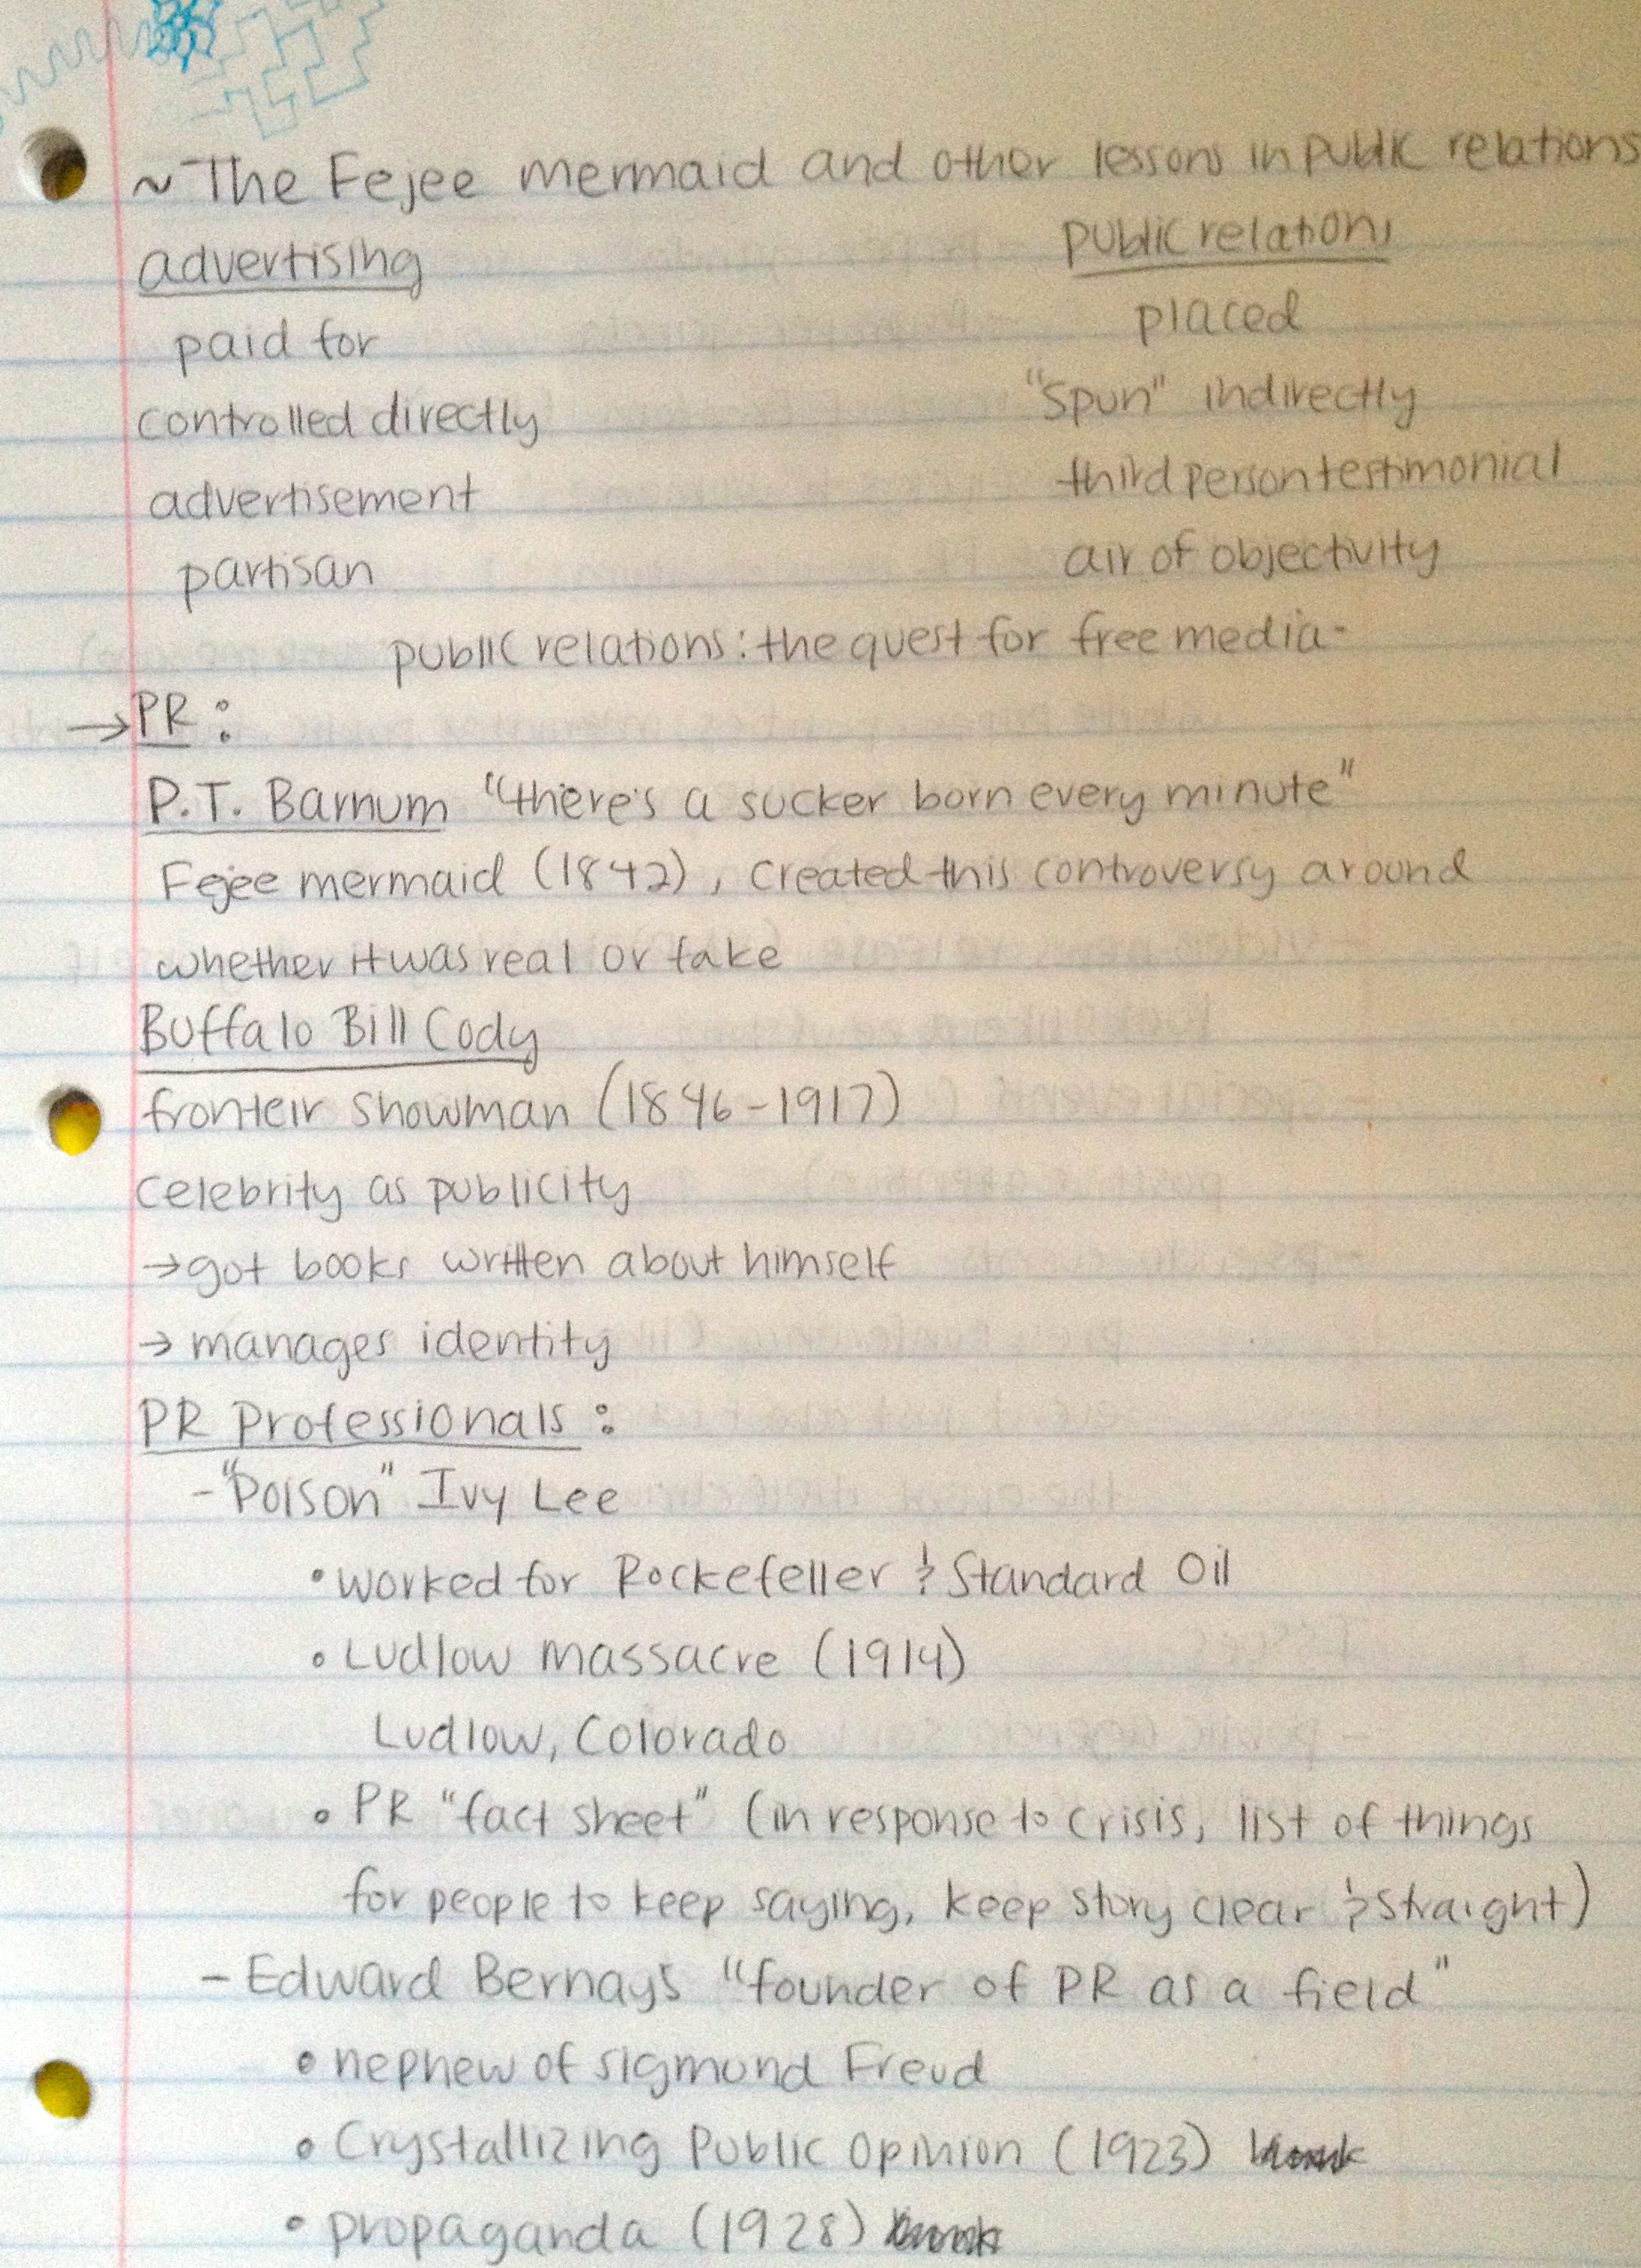 ~The Fejee mermaid and other lessons in public relations
advertising public relations
paid for placed
controlled directly "spun" indirectly
advertisement third person testimonial
partisan air of objectivity
public relations: the quest for free media-
→PR:
P.T. Barnum "there's a sucker born every minute"
Fejee mermaid (1842), created this controversy around
whether it was real or fake
Buffalo Bill Cody
fronteir showman (1846-1917)
celebrity as publicity
→got books written about himself
→ manages identity
PR Professionals:
-"Poison" Ivy Lee
• worked for Rockefeller & Standard Oil
• Ludlow massacre (1914)
Ludlow, Colorado
• PR "fact sheet" (in response to crisis, list of things
for people to keep saying, keep story clear & straight)
- Edward Bernays "founder of PR as a field"
• nephew of sigmund Freud
• Crystallizing Public Opinion (1923)
• propaganda (1928)